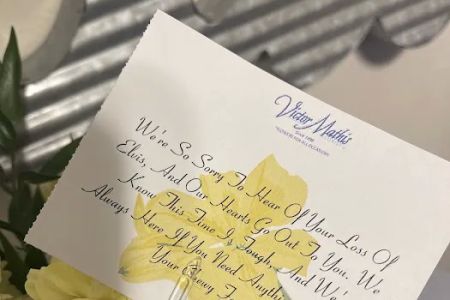 Victor Mathis
We're So Sorry To Hear Of Your Loss Of
Elvis, And Our Hearts Go Out To You. We
Know This Time Is Tough, And We're
Always Here If You Need Anyth
Your Chewy F